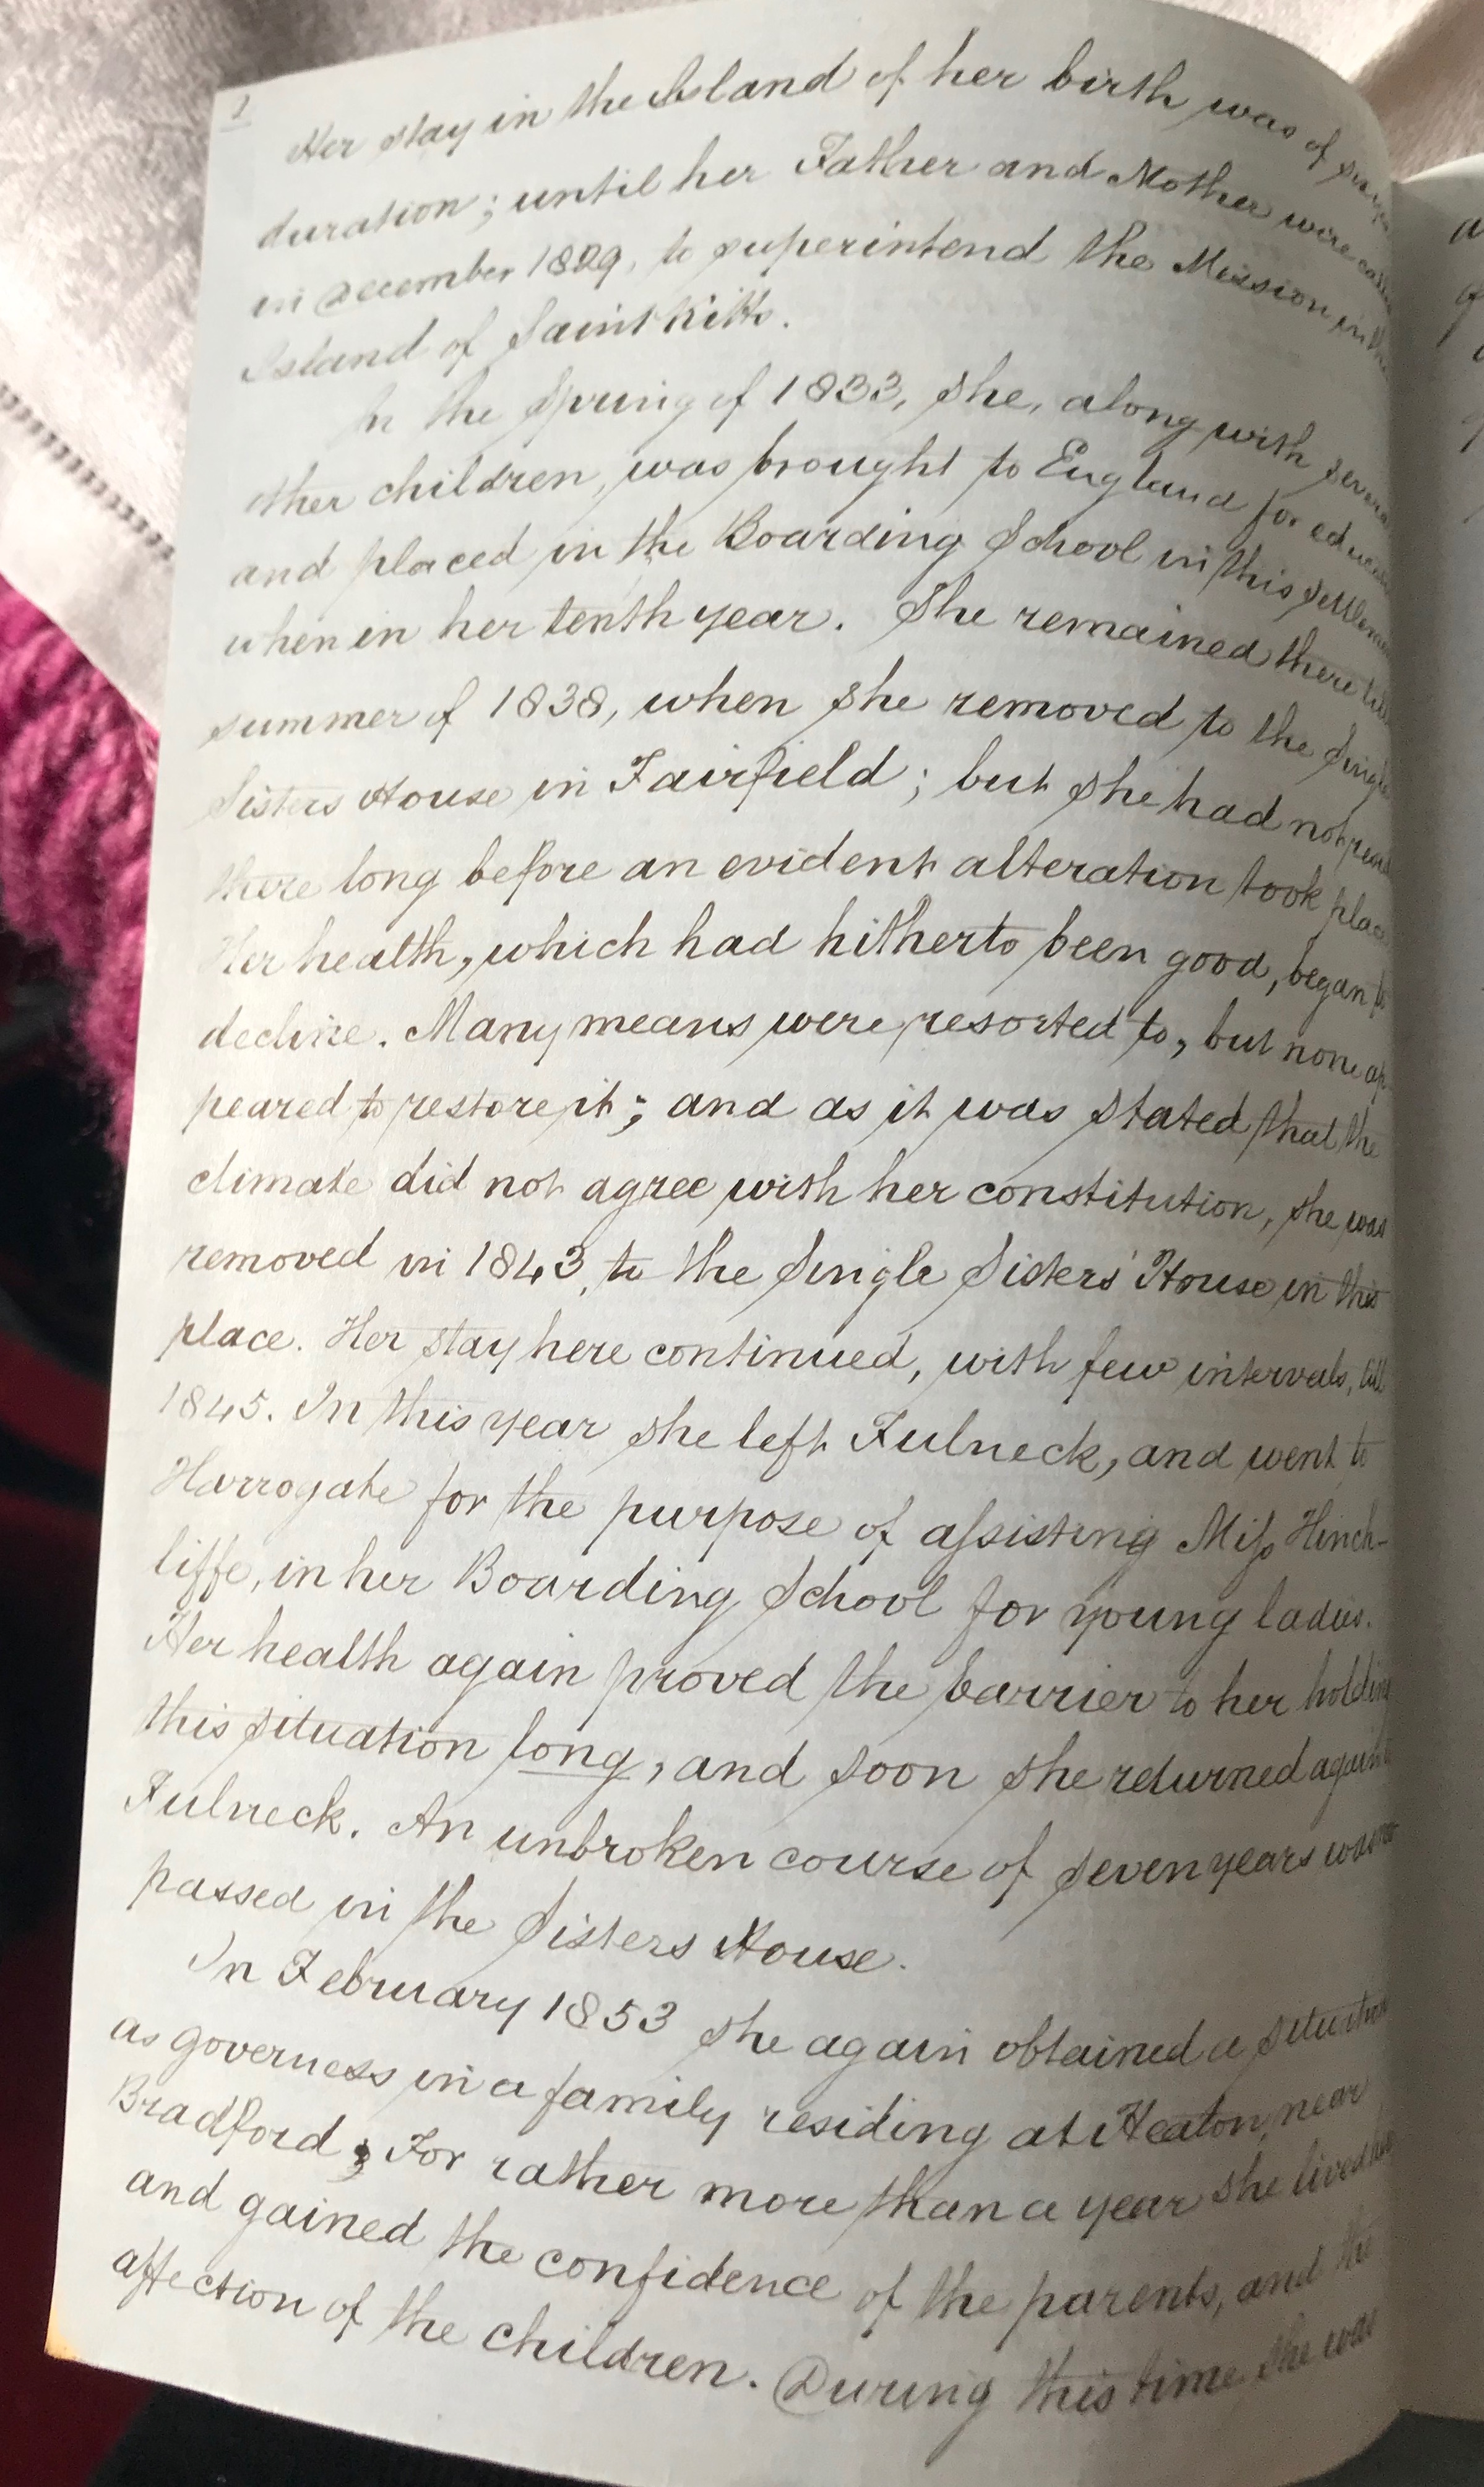 2
Her stay in the Island of her birth was of
duration; until her Father and Mother were
in December 1829, to superintend the Mission in the
Island of Saint Kitts.
In the Spring of 1833, she, along with several
other children, was brought to England for
and placed in the Boarding School in this
when in her tenth year. She remained there till
summer of 1838, when she removed to the Single
Sisters House in Fairfield; but she had not
there long before an evident alteration took place
Her health, which had hitherto been good, began to
decline. Many means were resorted to, but none ap
peared to restore it; and as it was stated that the
climate did not agree with her constitution, she was
removed in 1843, to the Single Sisters' House in this
place. Her stay here continued, with few intervals, till
1845. In this year she left Fulneck, and went to
Harrogate for the purpose of assisting Miss Hinch-
liffe, in her Boarding School for young ladies.
Her health again proved the barrier to her holding
this situation long, and soon she returned again
Fulneck. An unbroken course of seven years was
passed in the Sisters House.
In February 1853 she again obtained a situation
as governess in a family residing at Heaton, near
Bradford; For rather more than a year she lived
and gained the confidence of the parents, and the
affection of the children. During this time she was